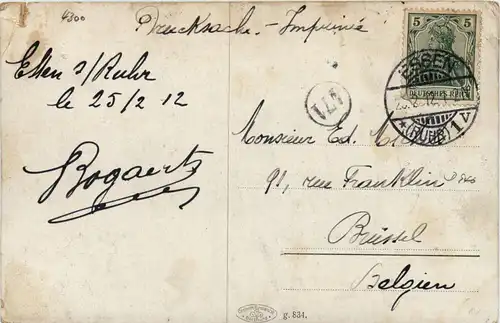 4300
Drucksache - Imprimé
Essen s/Ruhr
le 25/2 12
Bogaerts
5 5
DEUTSCHES REICH
ESSEN
* (RUHR) 1v
171
Monsieur Ed.
91, rue Franklin
Brüssel
Belgien
g. 834.